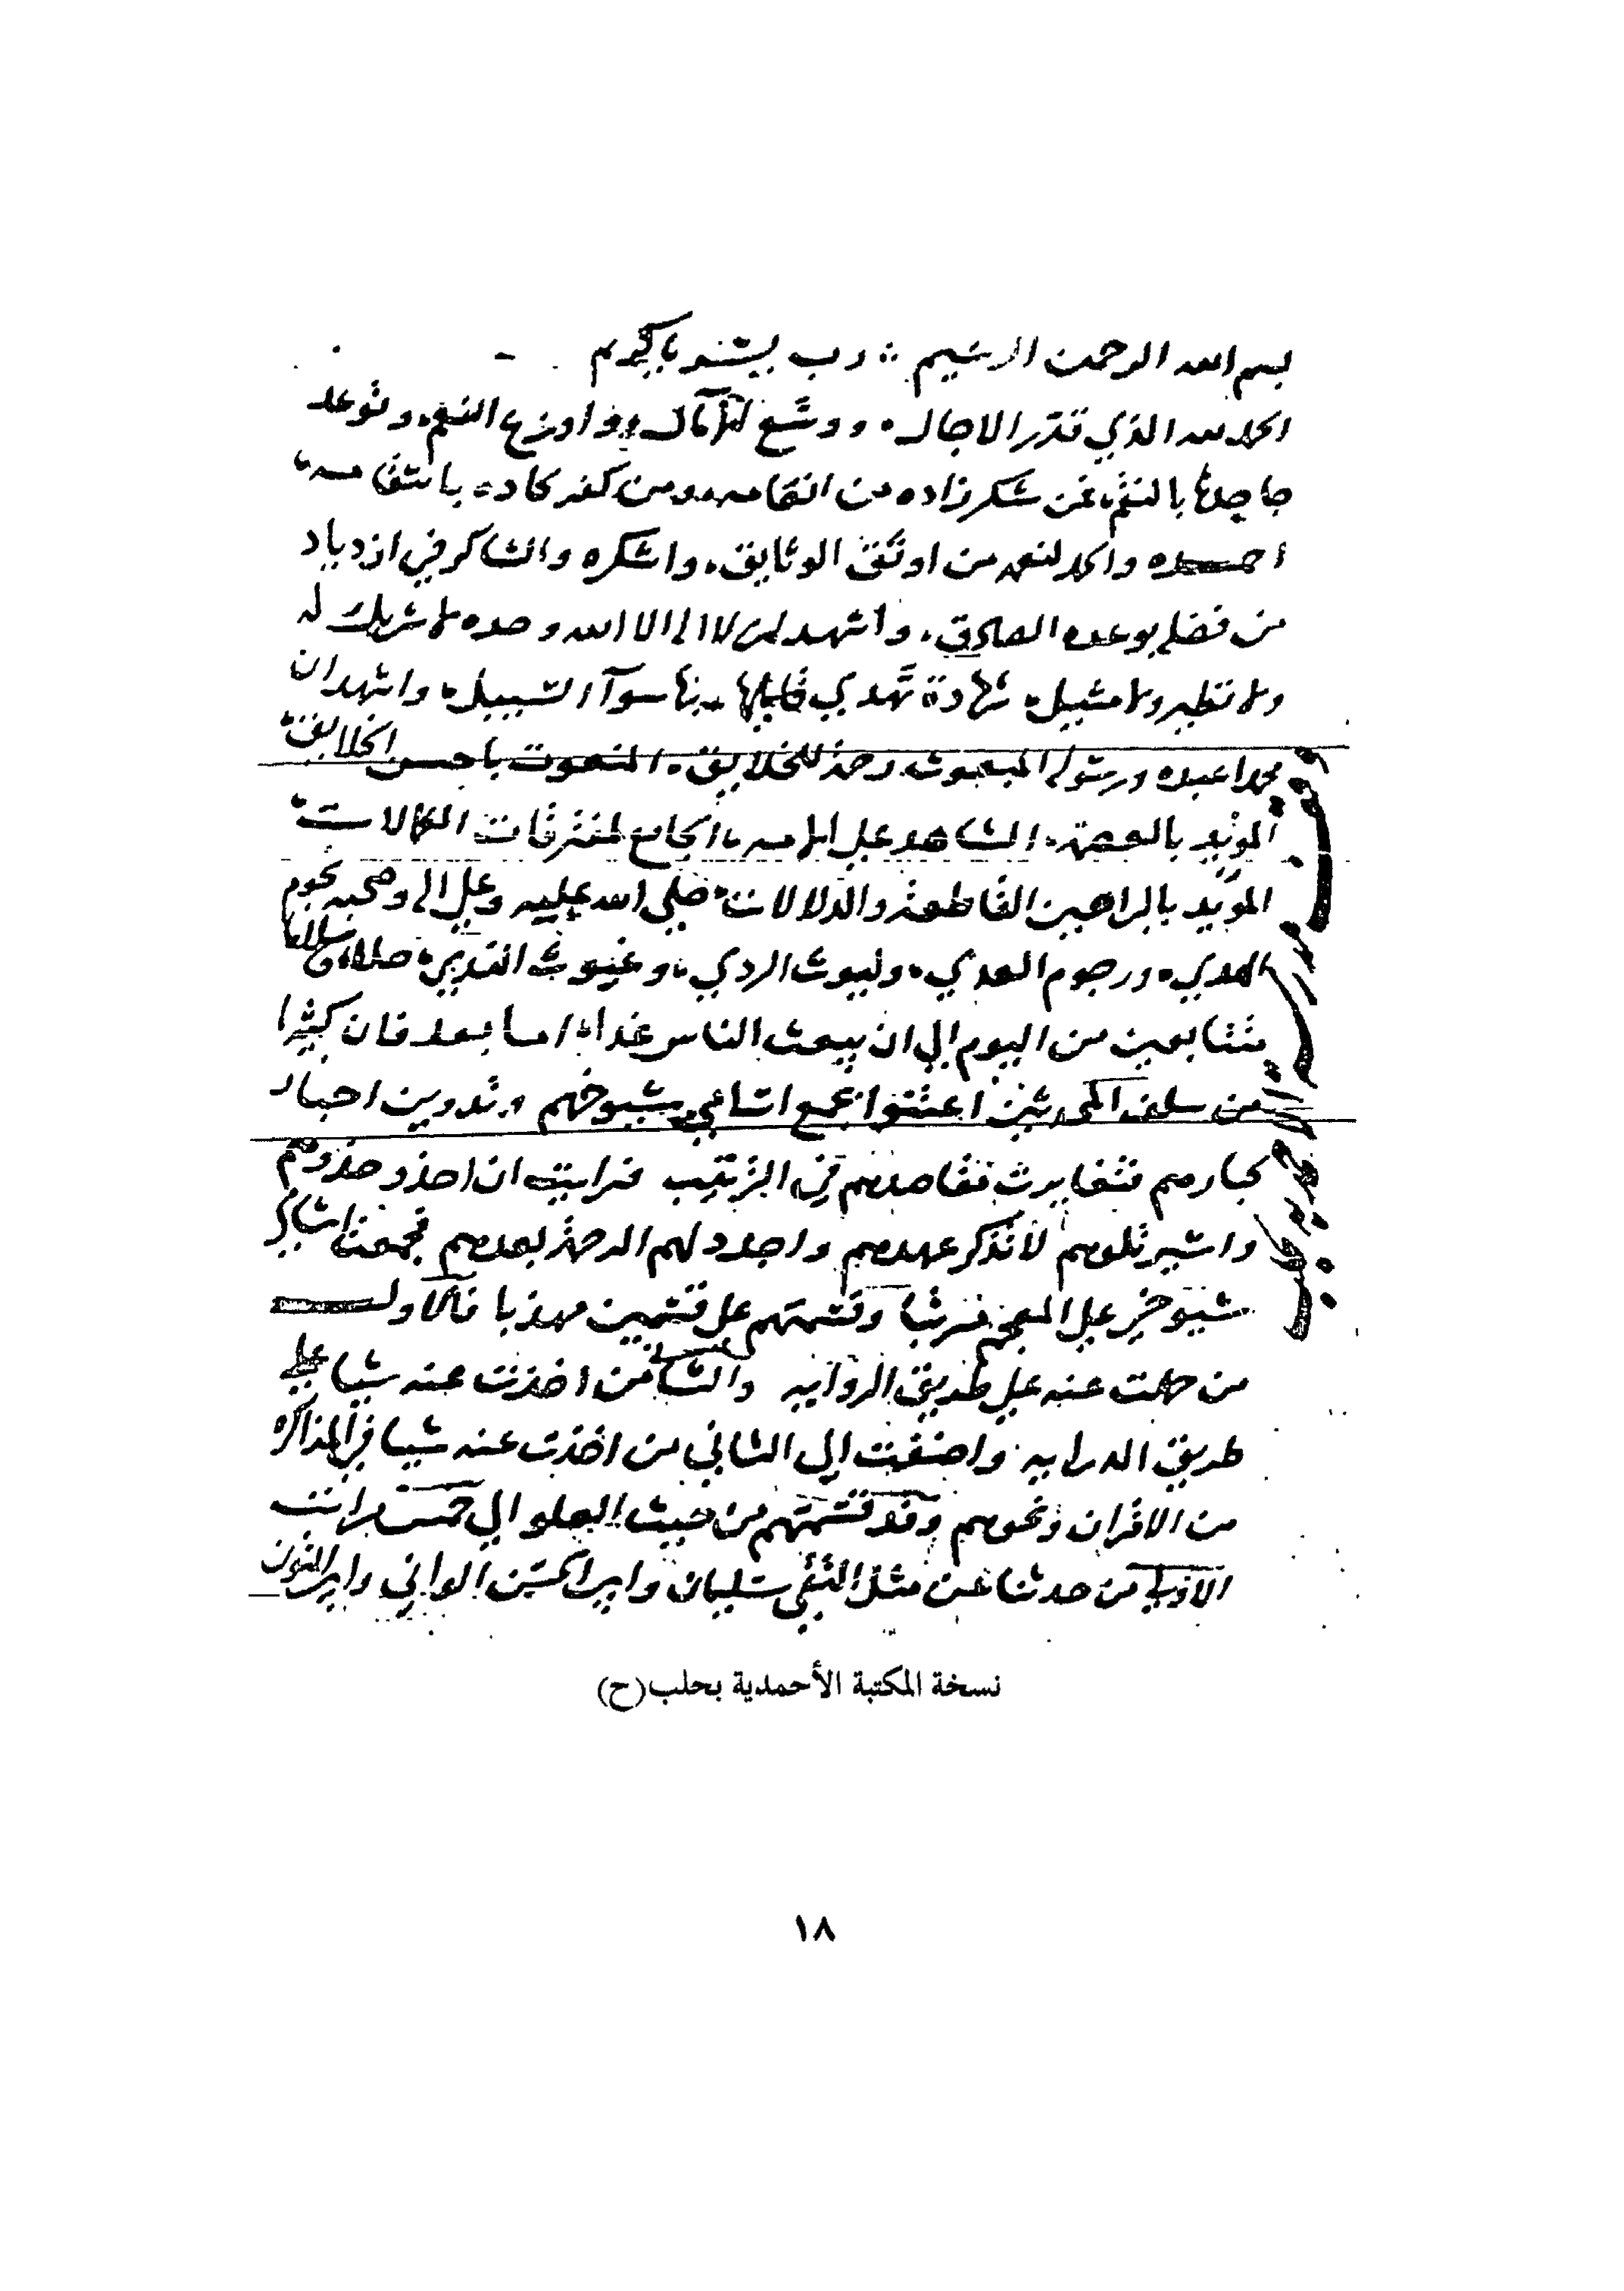 بسم الله الرحمن الرحيم رب يسر ياكريم
الحمد لله الذي قدر الاجال ووسع الآمال واوزع النعم وتوعد
جاحدها بالنقم فمن شكر زاده من انعامه ومن كفر كاده بانتقامه
احمده والحمد لنعمه من اوثق الوثايق واشكره والشاكر في ازدياد
من فضله بوعده الصادق واشهد ان لا اله الا الله وحده لا شريك له
ولا نظير ولا مثيل شهادة تهدي قايلها سوآ السبيل واشهد ان
محمدا عبده ورسوله المبعوث رحمة للخلايق المنعوت باحسن الخلايق
المويد بالعصمة الشاهد على امته الجامع لمتفرقات الكمالات
المويد بالبراهين القاطعة والدلالات صلى الله عليه وعلى اله وصحبه نجوم
الهدي ورجوم العدي وليوث الردي وغيوث الندي صلاة وسلاما
متتابعين من اليوم الى ان يبعث الناس غدا اما بعد فان كثيرا
من سلف المحدثين اعتنوا بجمع اسامي شيوخهم وتدوين اخبار
كبارهم فتغايرت مقاصدهم في الترتيب فرايت ان احذو حذوهم
واسير تلوهم لاتذكر عهدهم واجدد لهم الرحمة بعدهم فجمعت اسامي
شيوخي على المعجم مرتبا وقسمتهم على قسمين مهذبا فالاول
من حملت عنه على طريق الروايه والثاني من اخذت عنه شيا على
طريق الدرايه واضفت الى الثاني من اخذت عنه شيا في المذاكرة
من الاقران ونحوهم وقد قسمتهم من حيث العلو الى خمس مراتب
الاولى من حدثنا عن مثل التقي سليمان وابي الحسن الواني وابي النون
نسخة المكتبة الأحمدية بحلب (ح)
١٨